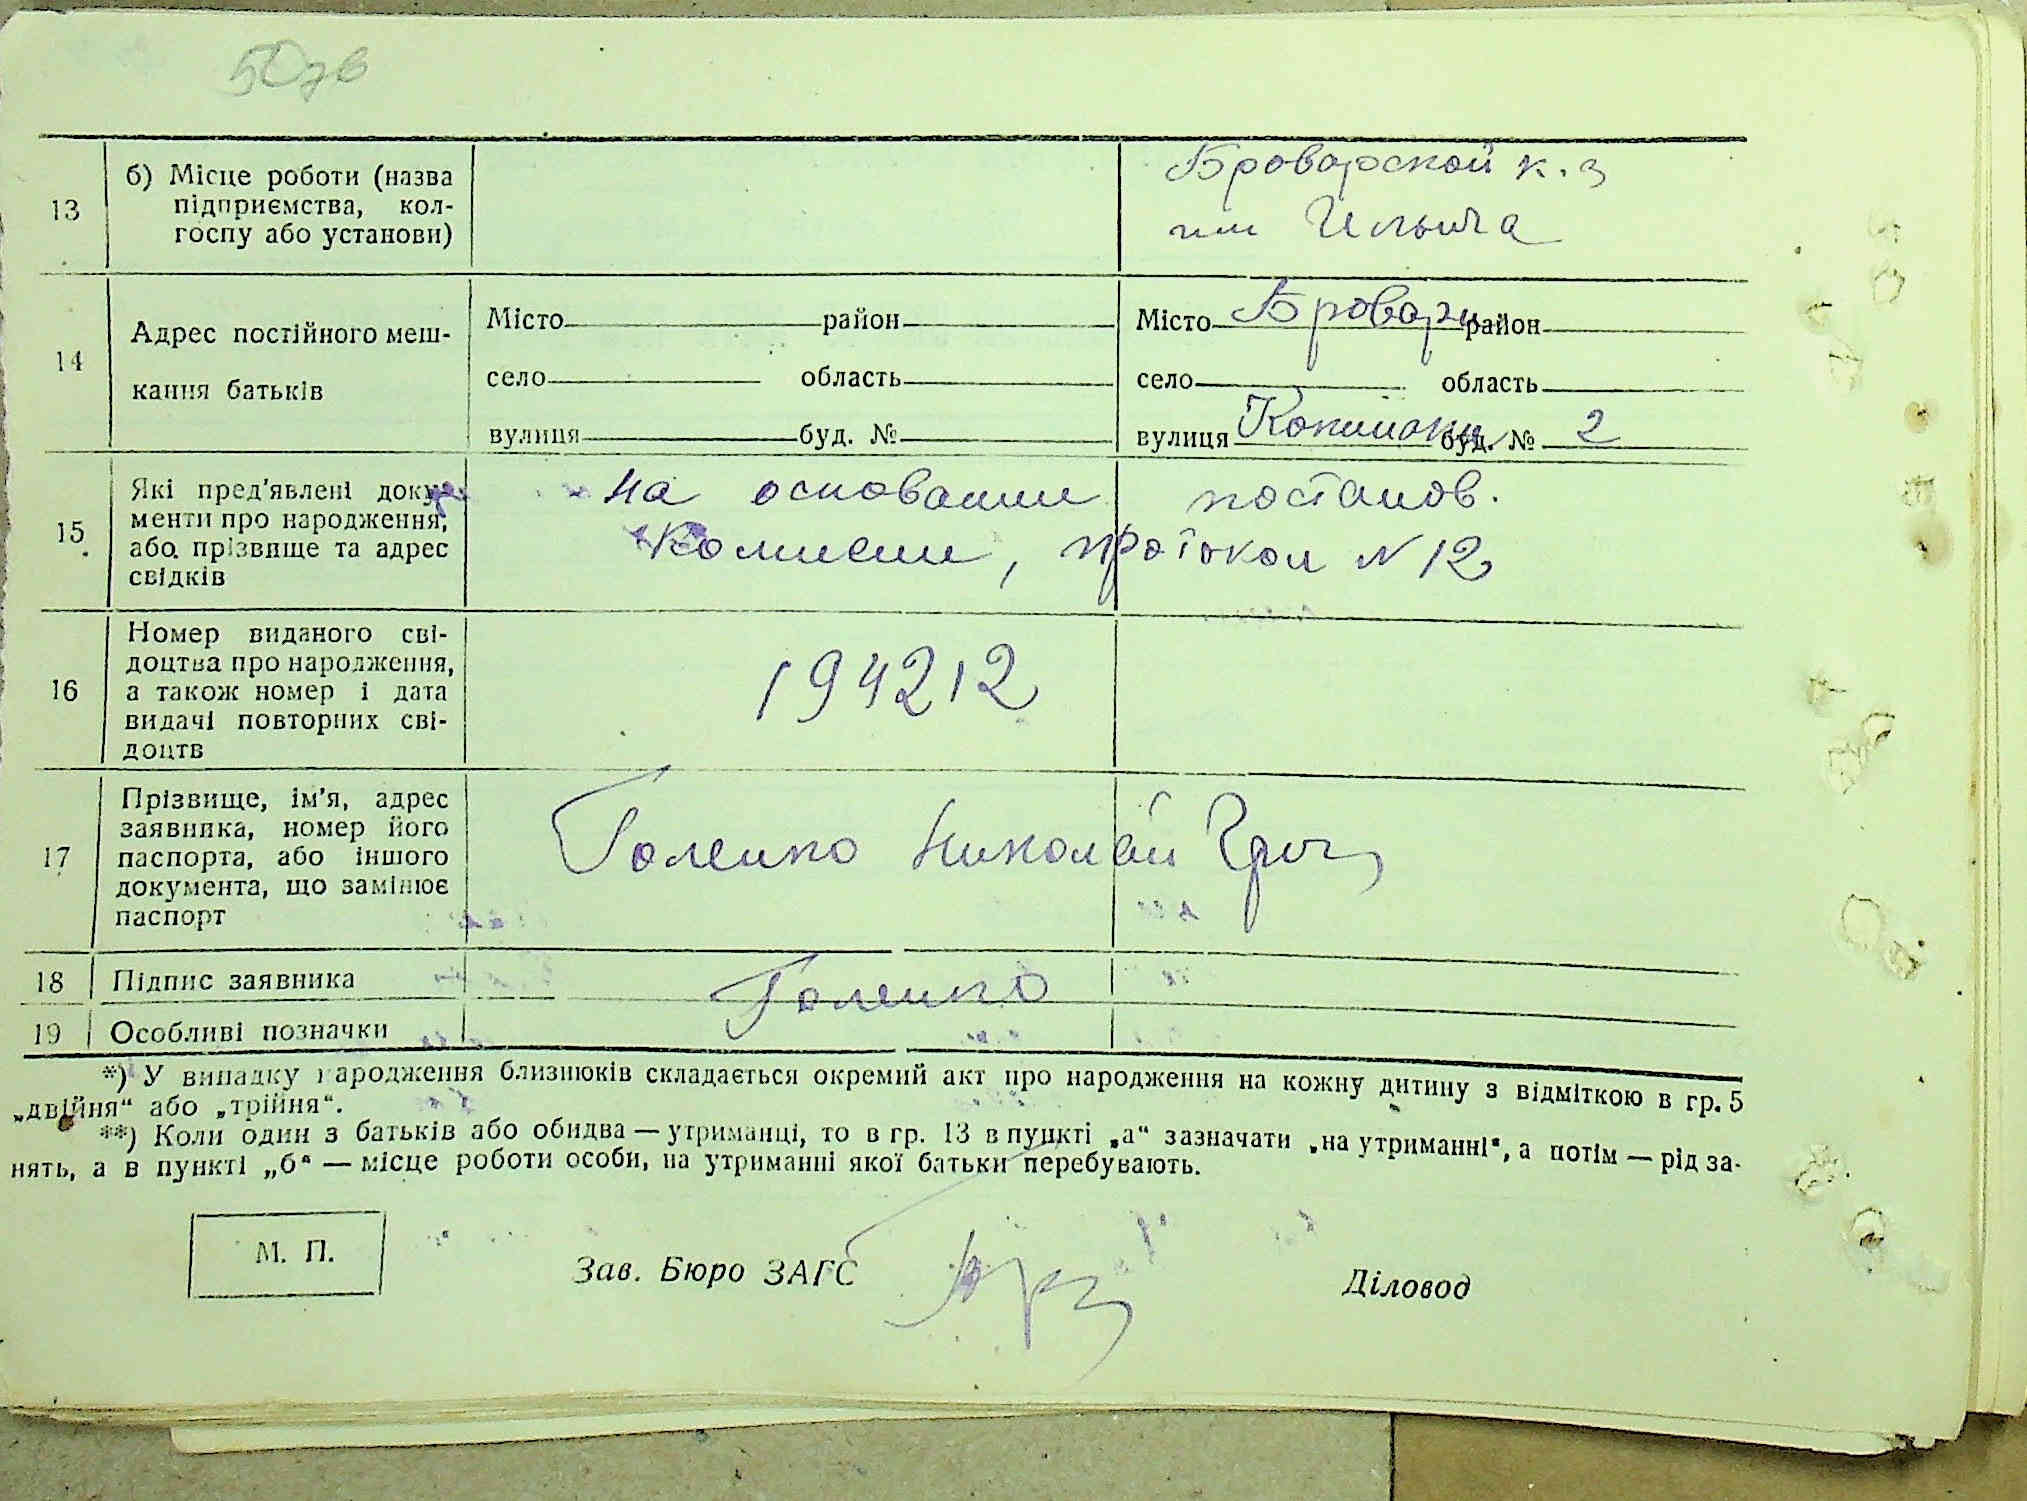 50 зв
13
б) Місце роботи (назва
підприємства, кол-
госпу або установи)
Броварской к. з
им Ильича
14
Адрес постійного меш-
кання батьків
Місто район
село область
вулиця буд. №
Місто Бровары район
село область
вулиця буд. № 2
15
Які пред'явлені доку-
менти про народження,
або прізвище та адрес
свідків
на основании постанов.
Комиссии, протокол N 12
16
Номер виданого сві-
доцтва про народження,
а також номер і дата
видачі повторних сві-
доцтв
194212
17
Прізвище, ім'я, адрес
заявника, номер його
паспорта, або іншого
документа, що замінює
паспорт
Голенко Николай Григ
18 Підпис заявника
Голенко
19 Особливі позначки
*) У випадку народження близнюків складається окремий акт про народження на кожну дитину з відміткою в гр. 5
„двійня“ або „трійня“.
**) Коли один з батьків або обидва — утриманці, то в гр. 13 в пункті „а“ зазначати „на утриманні“, а потім — рід за-
нять, а в пункті „б“ — місце роботи особи, на утриманні якої батьки перебувають.
М. П.
Зав. Бюро ЗАГС
Діловод